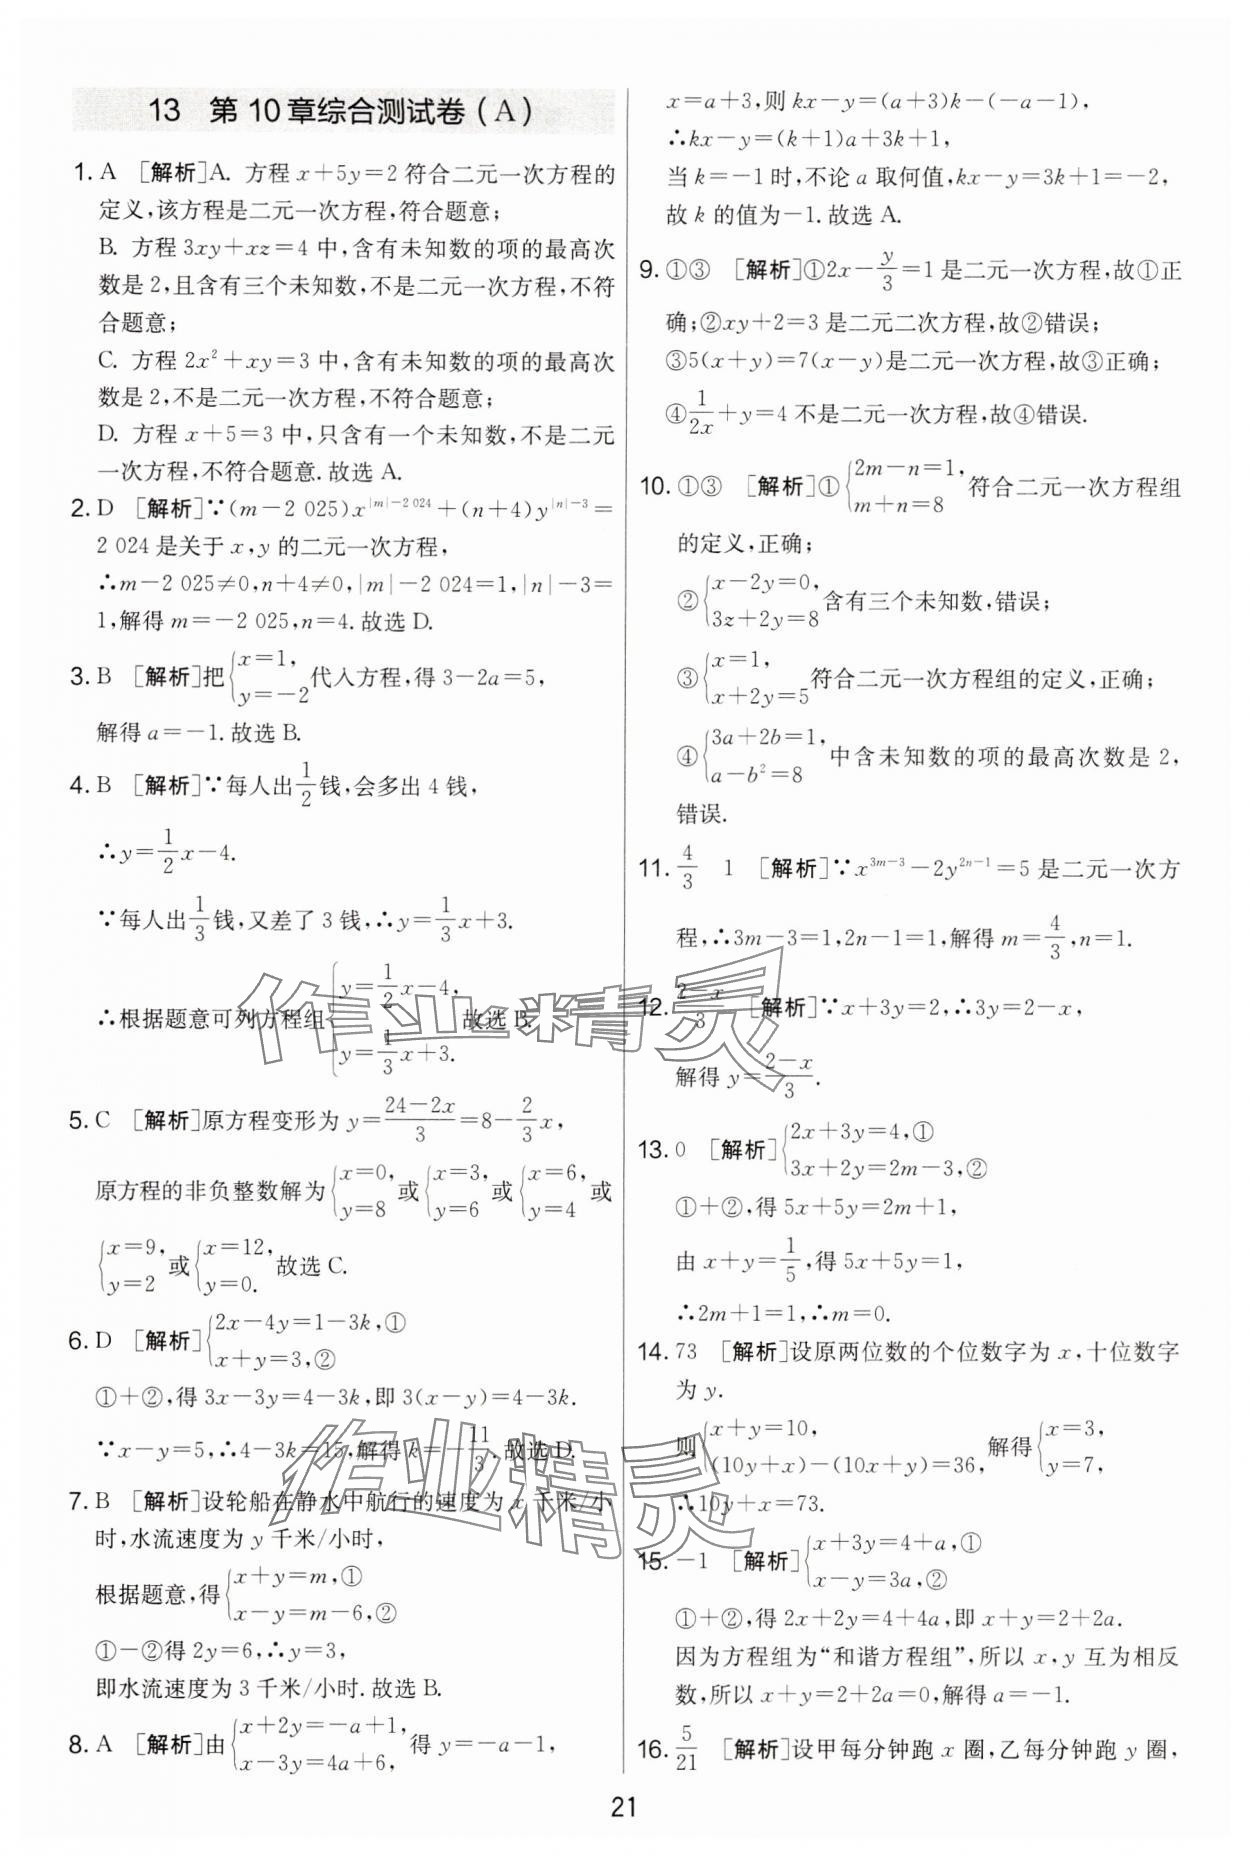 13 第10章综合测试卷(A)
1. A [解析]A. 方程 x+5y=2 符合二元一次方程的
定义,该方程是二元一次方程,符合题意;
B. 方程 3xy+xz=4 中,含有未知数的项的最高次
数是2,且含有三个未知数,不是二元一次方程,不符
合题意;
C. 方程 2x²+xy=3 中,含有未知数的项的最高次
数是2,不是二元一次方程,不符合题意;
D. 方程 x+5=3 中,只含有一个未知数,不是二元
一次方程,不符合题意.故选 A.
2. D [解析]∵(m-2 025)x^{|m|-2 024}+(n+4)y^{|n|-3}=
2 024 是关于 x,y 的二元一次方程,
∴m-2 025≠0,n+4≠0,|m|-2 024=1,|n|-3=
1,解得 m=-2 025,n=4.故选 D.
3. B [解析]把{x=1, y=-2 代入方程,得 3-2a=5,
解得 a=-1.故选 B.
4. B [解析]∵每人出1/2钱,会多出 4 钱,
∴y=1/2x-4.
∵每人出1/3钱,又差了 3 钱,∴y=1/3x+3.
∴根据题意可列方程组{y=1/2x-4, y=1/3x+3. 故选 B.
5. C [解析]原方程变形为 y=(24-2x)/3=8-2/3x,
原方程的非负整数解为{x=0, y=8 或{x=3, y=6 或{x=6, y=4 或
{x=9, y=2 或{x=12, y=0. 故选 C.
6. D [解析]{2x-4y=1-3k,① x+y=3,②
①+②,得 3x-3y=4-3k,即 3(x-y)=4-3k.
∵x-y=5,∴4-3k=15,解得 k=-11/3.故选 D.
7. B [解析]设轮船在静水中航行的速度为 x 千米/小
时,水流速度为 y 千米/小时,
根据题意,得{x+y=m,① x-y=m-6,②
①-②得 2y=6,∴y=3,
即水流速度为 3 千米/小时.故选 B.
8. A [解析]由{x+2y=-a+1, x-3y=4a+6, 得 y=-a-1,
x=a+3,则 kx-y=(a+3)k-(-a-1),
∴kx-y=(k+1)a+3k+1,
当 k=-1 时,不论 a 取何值,kx-y=3k+1=-2,
故 k 的值为-1.故选 A.
9. ①③ [解析]①2x-y/3=1 是二元一次方程,故①正
确;②xy+2=3 是二元二次方程,故②错误;
③5(x+y)=7(x-y)是二元一次方程,故③正确;
④1/2x+y=4 不是二元一次方程,故④错误.
10. ①③ [解析]①{2m-n=1, m+n=8 符合二元一次方程组
的定义,正确;
②{x-2y=0, 3z+2y=8 含有三个未知数,错误;
③{x=1, x+2y=5 符合二元一次方程组的定义,正确;
④{3a+2b=1, a-b²=8 中含未知数的项的最高次数是 2,
错误.
11. 4/3 1 [解析]∵x^{3m-3}-2y^{2n-1}=5 是二元一次方
程,∴3m-3=1,2n-1=1,解得 m=4/3,n=1.
12. (2-x)/3 [解析]∵x+3y=2,∴3y=2-x,
解得 y=(2-x)/3.
13. 0 [解析]{2x+3y=4,① 3x+2y=2m-3,②
①+②,得 5x+5y=2m+1,
由 x+y=1/5,得 5x+5y=1,
∴2m+1=1,∴m=0.
14. 73 [解析]设原两位数的个位数字为 x,十位数字
为 y.
则{x+y=10, (10y+x)-(10x+y)=36, 解得{x=3, y=7,
∴10y+x=73.
15. -1 [解析]{x+3y=4+a,① x-y=3a,②
①+②,得 2x+2y=4+4a,即 x+y=2+2a.
因为方程组为“和谐方程组”,所以 x,y 互为相反
数,所以 x+y=2+2a=0,解得 a=-1.
16. 5/21 [解析]设甲每分钟跑 x 圈,乙每分钟跑 y 圈,
作业精灵
作业精灵
21